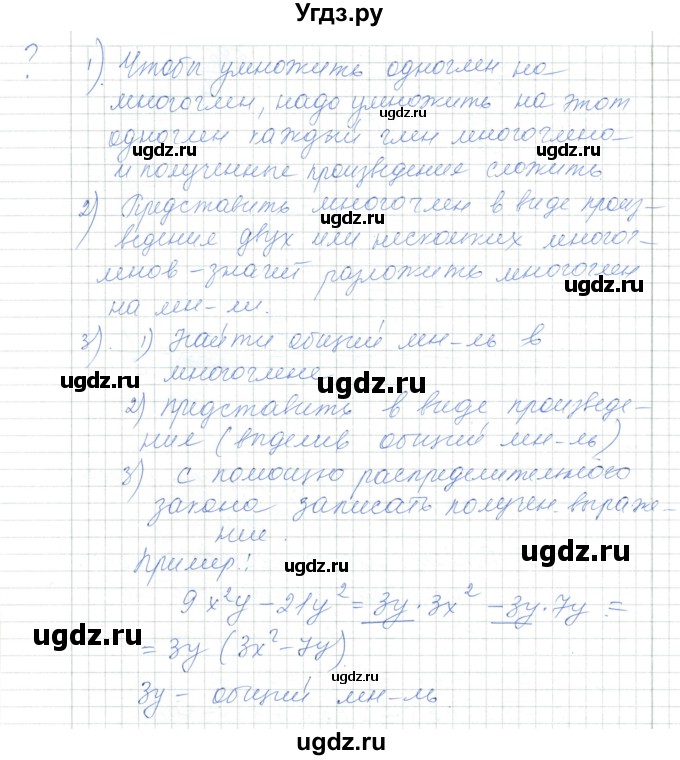 Угдз.ру
?
1). Чтобы умножить одночлен на
многочлен, надо умножить на этот
одночлен каждый член многочлена
и полученные произведения сложить
2) Представить многочлен в виде произ-
ведения двух или нескольких многоч-
ленов - значит разложить многочлен
на мн-ли.
3). 1) Найти общий мн-ль в
многочлене
2) представить в виде произведе-
ния (выделив общий мн-ль)
3) с помощью распределительного
закона записать получен. выраже-
ние.
Пример:
9x²y - 21y² = 3y · 3x² - 3y · 7y =
= 3y (3x² - 7y)
3y - общий мн-ль
ugdz.ru
ugdz.ru
ugdz.ru
ugdz.ru
ugdz.ru
ugdz.ru
ugdz.ru
ugdz.ru
ugdz.ru
ugdz.ru
ugdz.ru
ugdz.ru
ugdz.ru
ugdz.ru